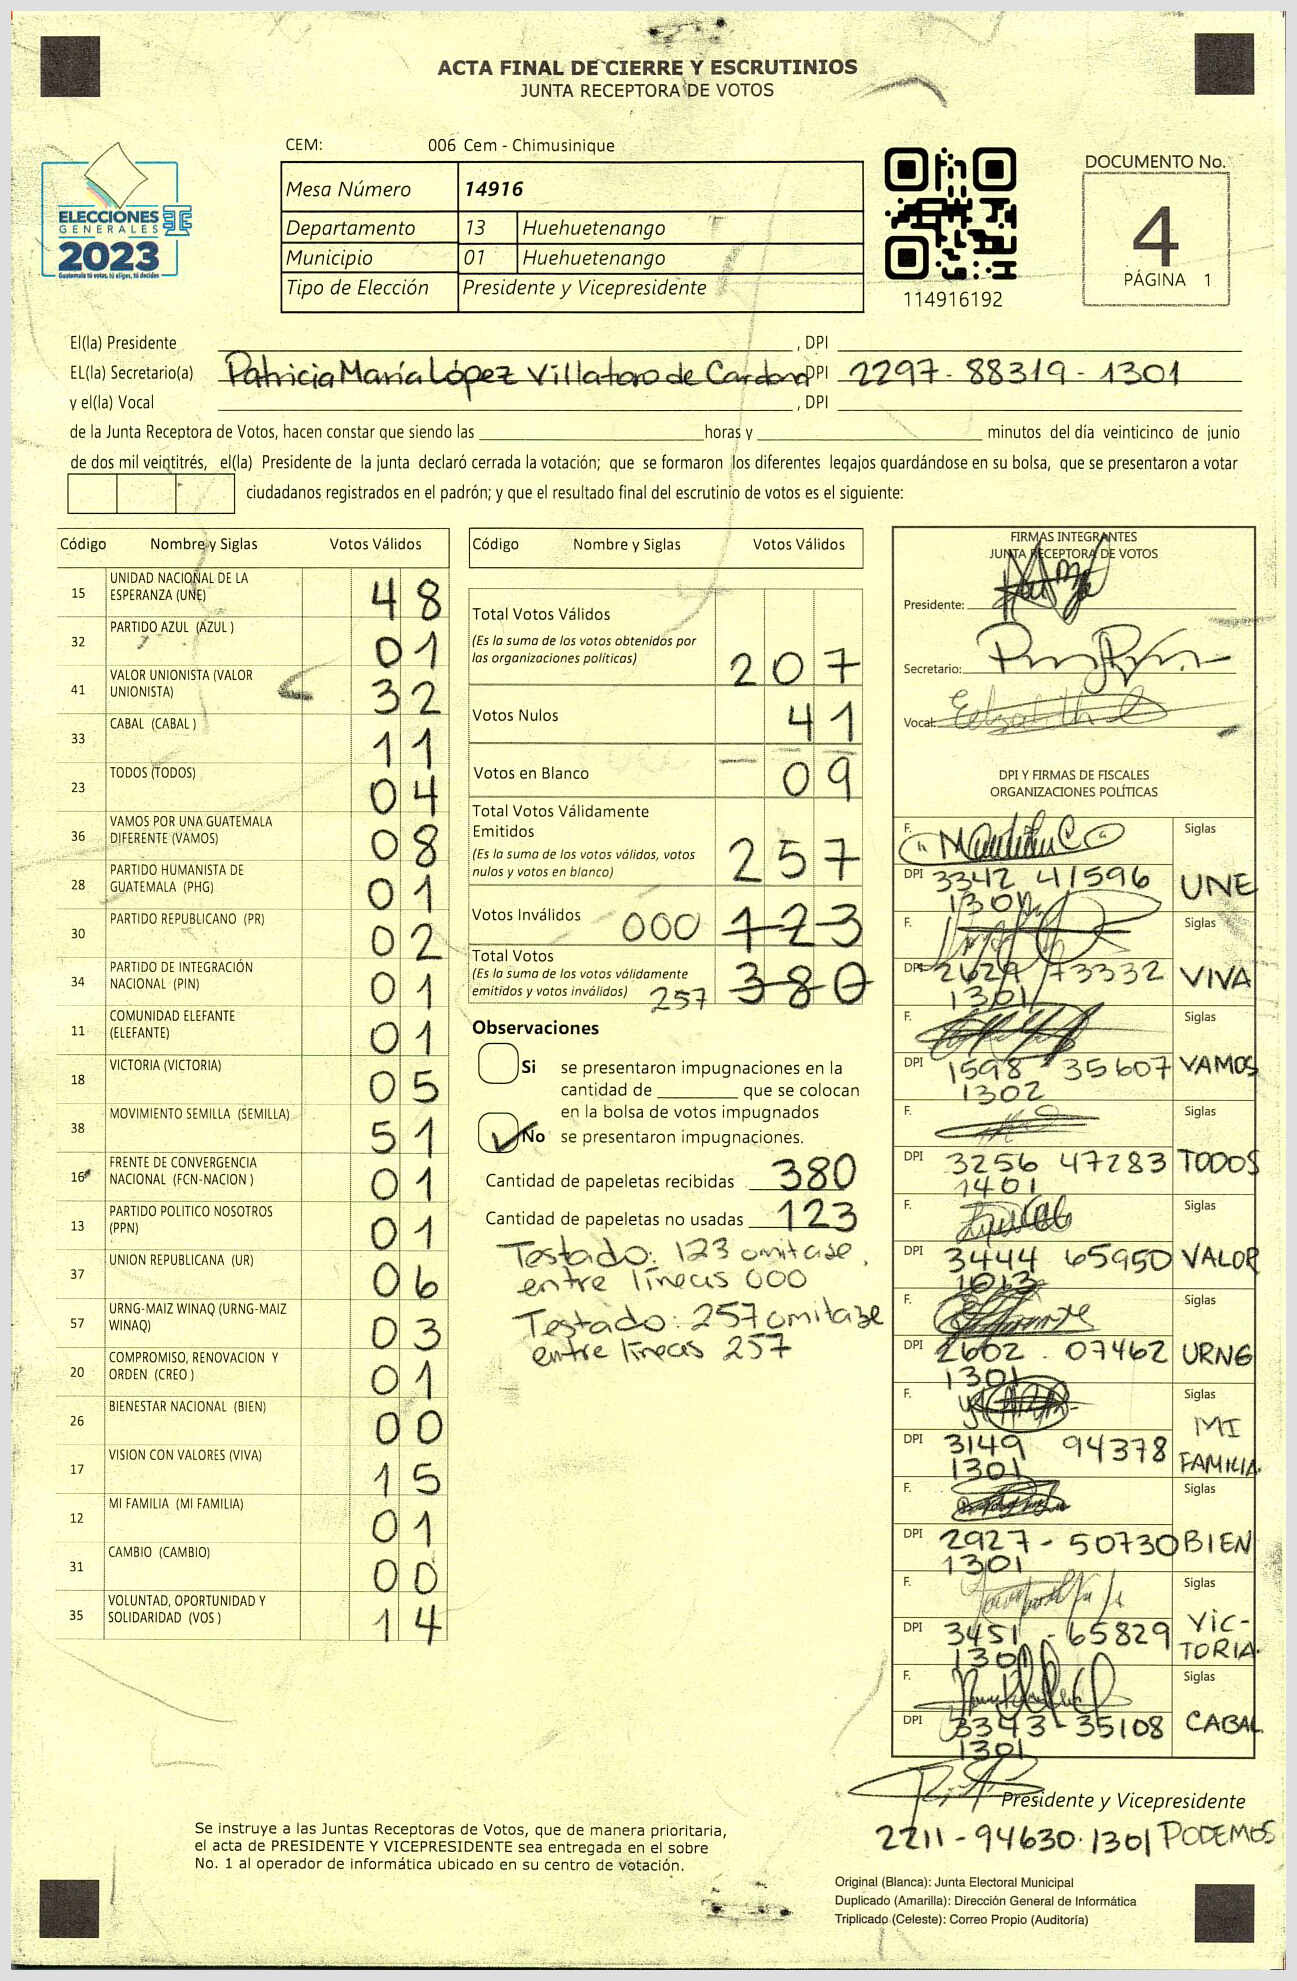 ACTA FINAL DE CIERRE Y ESCRUTINIOS
JUNTA RECEPTORA DE VOTOS
CEM: 006 Cem - Chimusinique
ELECCIONES
GENERALES
2023
Guatemala tú votas, tú eliges, tú decides
Mesa Número 14916
Departamento 13 Huehuetenango
Municipio 01 Huehuetenango
Tipo de Elección Presidente y Vicepresidente
114916192
DOCUMENTO No.
4
PÁGINA 1
El(la) Presidente , DPI
EL(la) Secretario(a) Patricia María López Villatoro de Cardona DPI 2297-88319-1301
y el(la) Vocal , DPI
de la Junta Receptora de Votos, hacen constar que siendo las horas y minutos del día veinticinco de junio
de dos mil veintitrés, el(la) Presidente de la junta declaró cerrada la votación; que se formaron los diferentes legajos quardándose en su bolsa, que se presentaron a votar
ciudadanos registrados en el padrón; y que el resultado final del escrutinio de votos es el siguiente:
Código Nombre y Siglas Votos Válidos
15 UNIDAD NACIONAL DE LA ESPERANZA (UNE) 48
32 PARTIDO AZUL (AZUL ) 01
41 VALOR UNIONISTA (VALOR UNIONISTA) 32
33 CABAL (CABAL ) 11
23 TODOS (TODOS) 04
36 VAMOS POR UNA GUATEMALA DIFERENTE (VAMOS) 08
28 PARTIDO HUMANISTA DE GUATEMALA (PHG) 01
30 PARTIDO REPUBLICANO (PR) 02
34 PARTIDO DE INTEGRACIÓN NACIONAL (PIN) 01
11 COMUNIDAD ELEFANTE (ELEFANTE) 01
18 VICTORIA (VICTORIA) 05
38 MOVIMIENTO SEMILLA (SEMILLA) 51
16 FRENTE DE CONVERGENCIA NACIONAL (FCN-NACION ) 01
13 PARTIDO POLITICO NOSOTROS (PPN) 01
37 UNION REPUBLICANA (UR) 06
57 URNG-MAIZ WINAQ (URNG-MAIZ WINAQ) 03
20 COMPROMISO, RENOVACION Y ORDEN (CREO ) 01
26 BIENESTAR NACIONAL (BIEN) 00
17 VISION CON VALORES (VIVA) 15
12 MI FAMILIA (MI FAMILIA) 01
31 CAMBIO (CAMBIO) 00
35 VOLUNTAD, OPORTUNIDAD Y SOLIDARIDAD (VOS ) 14
Código Nombre y Siglas Votos Válidos
Total Votos Válidos
(Es la suma de los votos obtenidos por
las organizaciones políticas) 207
Votos Nulos 41
Votos en Blanco 09
Total Votos Válidamente
Emitidos
(Es la suma de los votos válidos, votos
nulos y votos en blanco) 257
Votos Inválidos 000 123
Total Votos
(Es la suma de los votos válidamente
emitidos y votos inválidos) 257 380
Observaciones
Si se presentaron impugnaciones en la
cantidad de que se colocan
en la bolsa de votos impugnados
No se presentaron impugnaciones.
Cantidad de papeletas recibidas 380
Cantidad de papeletas no usadas 123
Testado: 123 omitase,
entre líneas 000
Testado: 257 omitase
entre líneas 257
FIRMAS INTEGRANTES
JUNTA RECEPTORA DE VOTOS
Presidente:
Secretario:
Vocal:
DPI Y FIRMAS DE FISCALES
ORGANIZACIONES POLÍTICAS
F. Siglas
DPI 3342 41596 UNE
1301
F. Siglas
DPI 2629 73332 VIVA
1301
F. Siglas
DPI 1598 35607 VAMOS
1302
F. Siglas
DPI 3256 47283 TODOS
1401
F. Siglas
DPI 3444 65950 VALOR
1013
F. Siglas
DPI 2602 . 07462 URNG
1301
F. Siglas
MI
DPI 3149 94378 FAMILIA.
1301
F. Siglas
DPI 2927 - 50730 BIEN
1301
F. Siglas
DPI 3451 - 65829 VIC-
1301 TORIA.
F. Siglas
DPI 3343-35108 CABAL
1301
Presidente y Vicepresidente
2211-94630.1301 PODEMOS
Se instruye a las Juntas Receptoras de Votos, que de manera prioritaria,
el acta de PRESIDENTE Y VICEPRESIDENTE sea entregada en el sobre
No. 1 al operador de informática ubicado en su centro de votación.
Original (Blanca): Junta Electoral Municipal
Duplicado (Amarilla): Dirección General de Informática
Triplicado (Celeste): Correo Propio (Auditoría)